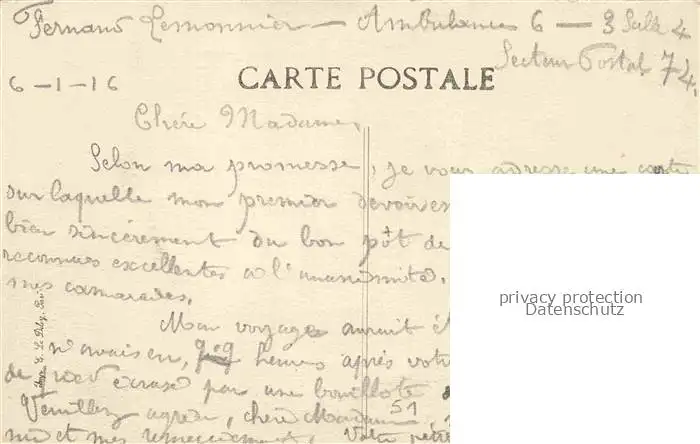 Fernand Lemonnier — Ambulance 6 — 3 Salle 4
Secteur Postal 74.
6-1-16
CARTE POSTALE
Chère Madame,
Selon ma promesse, je vous adresse une carte
sur laquelle mon premier devoir est
bien sincèrement du bon pôt de
reconnues excellentes à l'unanimité.
mes camarades.
Mon voyage aurait
heures après votre
de écrasé par une bouillote
Veuillez agréer, chère Madame
51
et mes remerciements. Votre
privacy protection
Datenschutz